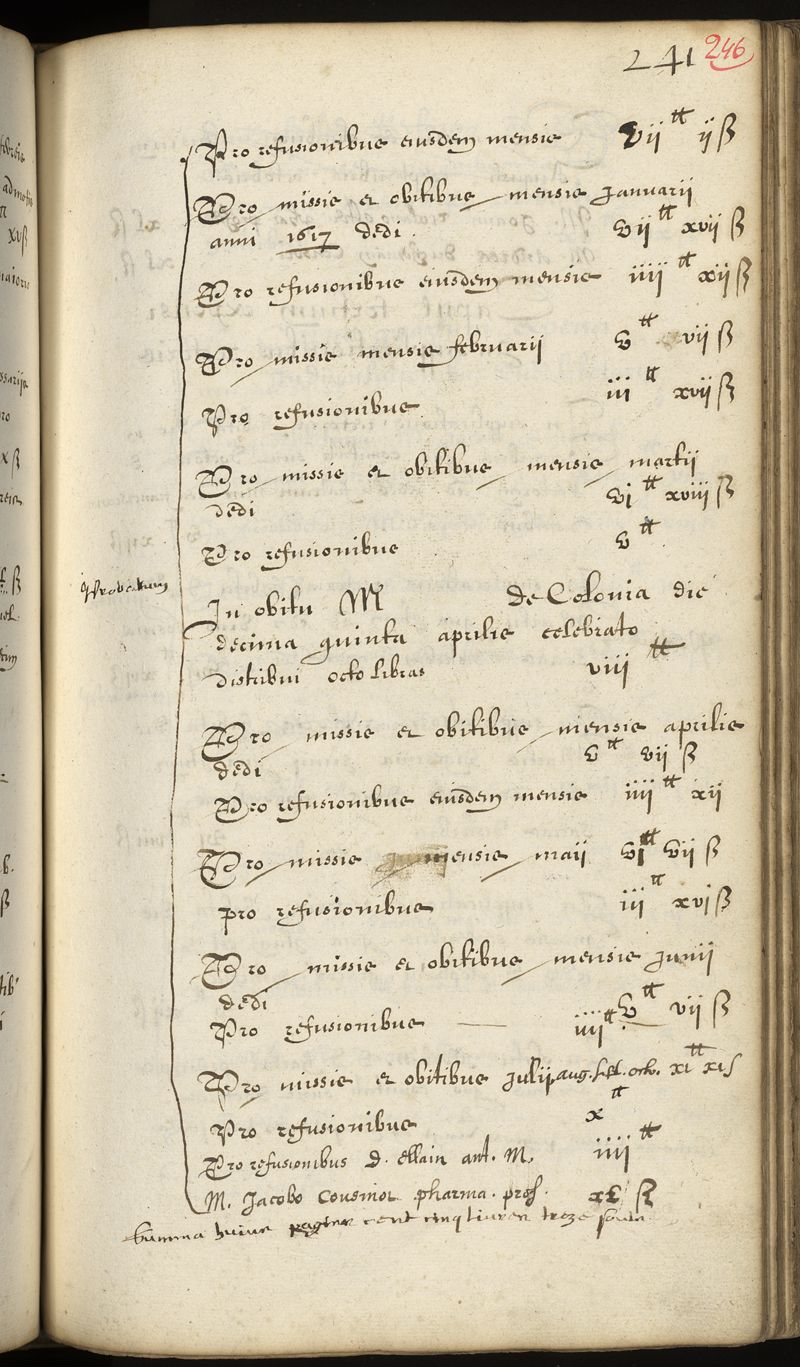 241 246
Pro refusionibus eiusdem mensis vii tt ii ß
Pro missis et obitibus mensis Januarii
anni 1617 dedi vii tt xvii ß
Pro refusionibus eiusdem mensis iiii tt xii ß
Pro missis mensis februarii v tt vii ß
Pro refusionibus iii tt xvii ß
Pro missis et obitibus mensis martii
dedi vi tt xviii ß
Pro refusionibus v tt
In obitu M de Colonia die
decima quinta aprilis celebrato
distribui octo libras viii tt
Pro missis et obitibus mensis aprilis
dedi v tt vii ß
Pro refusionibus eiusdem mensis iiii tt xii
Pro missis mensis maii vi tt vii ß
pro refusionibus iii tt xvi ß
Pro missis et obitibus mensis Junii
dedi v tt vii ß
Pro refusionibus iiii tt
Pro missis et obitibus Julii aug. sept. octo. xi tt xi s
Pro refusionibus x tt
Pro refusionibus d. ant. M. iiii tt
M. Jacobo Cousinot pharma. prof. xl ß
Summa huius paginae cent cinq livres treze soulz